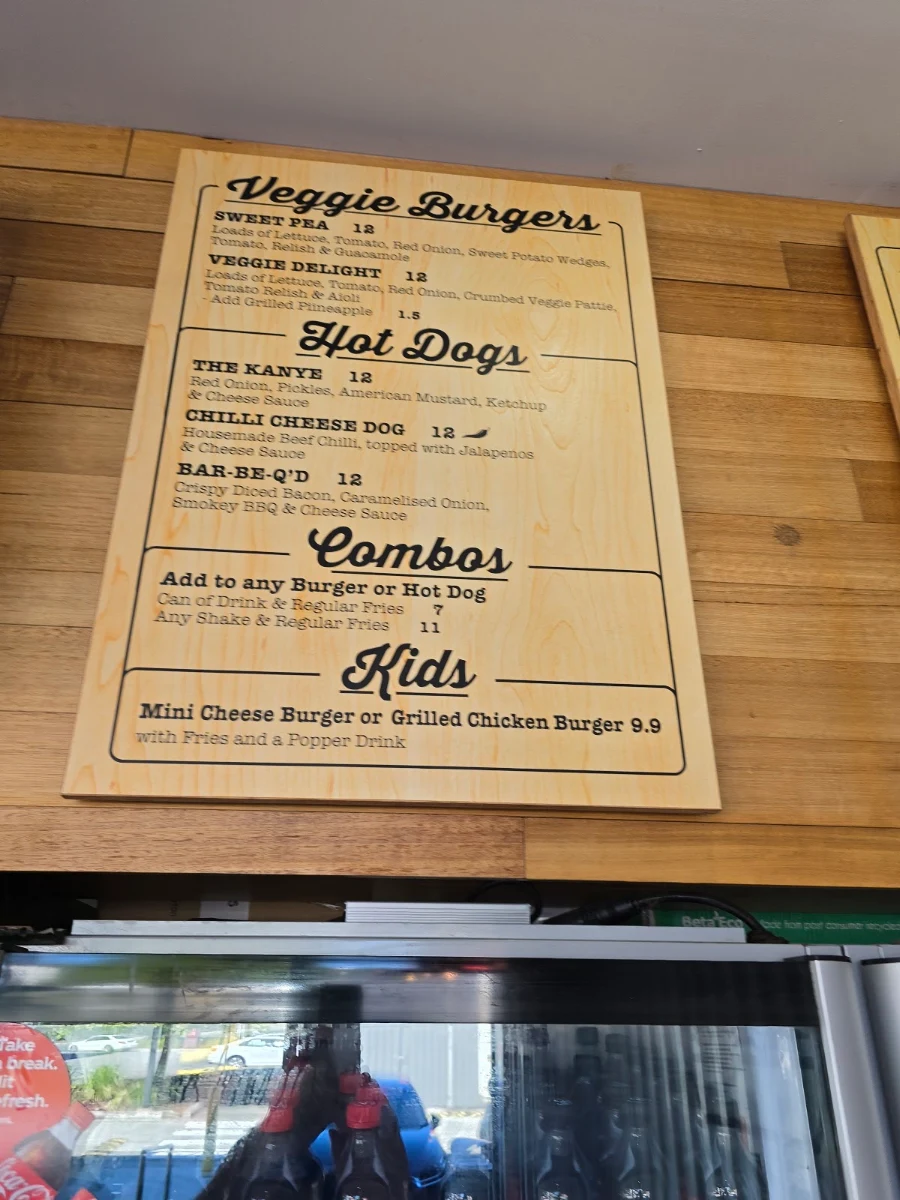 Veggie Burgers
SWEET PEA 12
Loads of Lettuce, Tomato, Red Onion, Sweet Potato Wedges,
Tomato, Relish & Guacamole
VEGGIE DELIGHT 12
Loads of Lettuce, Tomato, Red Onion, Crumbed Veggie Pattie,
Tomato Relish & Aioli
- Add Grilled Piineapple 1.5
Hot Dogs
THE KANYE 12
Red Onion, Pickles, American Mustard, Ketchup
& Cheese Sauce
CHILLI CHEESE DOG 12
Housemade Beef Chilli, topped with Jalapenos
& Cheese Sauce
BAR-BE-Q'D 12
Crispy Diced Bacon, Caramelised Onion,
Smokey BBQ & Cheese Sauce
Combos
Add to any Burger or Hot Dog
Can of Drink & Regular Fries 7
Any Shake & Regular Fries 11
Kids
Mini Cheese Burger or Grilled Chicken Burger 9.9
with Fries and a Popper Drink
Beta Eco made from post consumer recycled
Take
a break.
efresh.